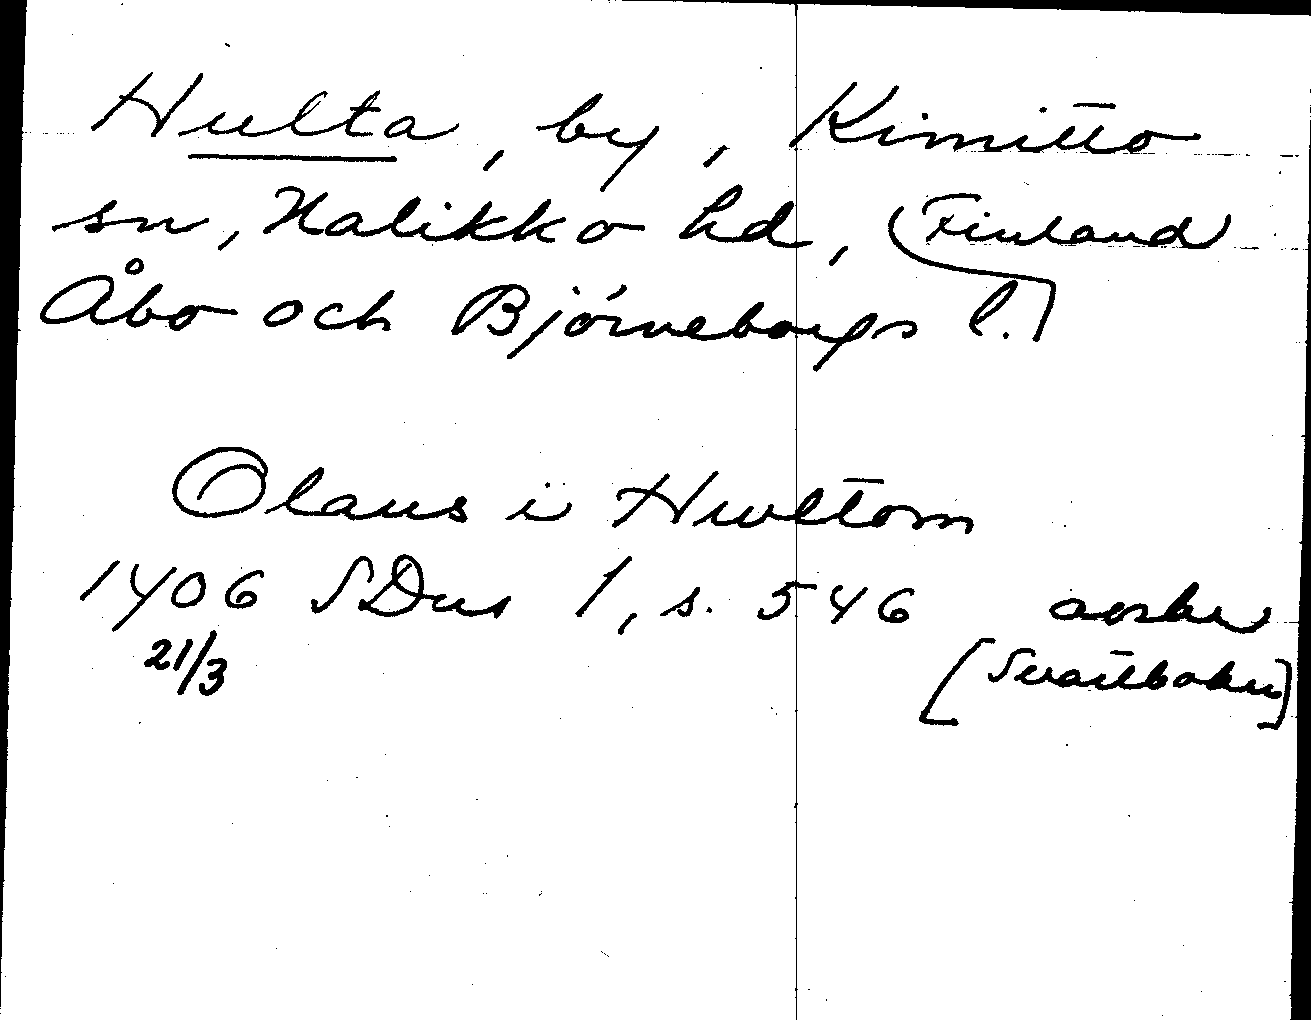 Hulta, by, Kimitto
sn, Halikko hd, (Finland
Åbo och Björneborgs l.)
Olaus i Hwltom
1406 SDns 1, s. 546 avskr
21/3 [Svartboken]